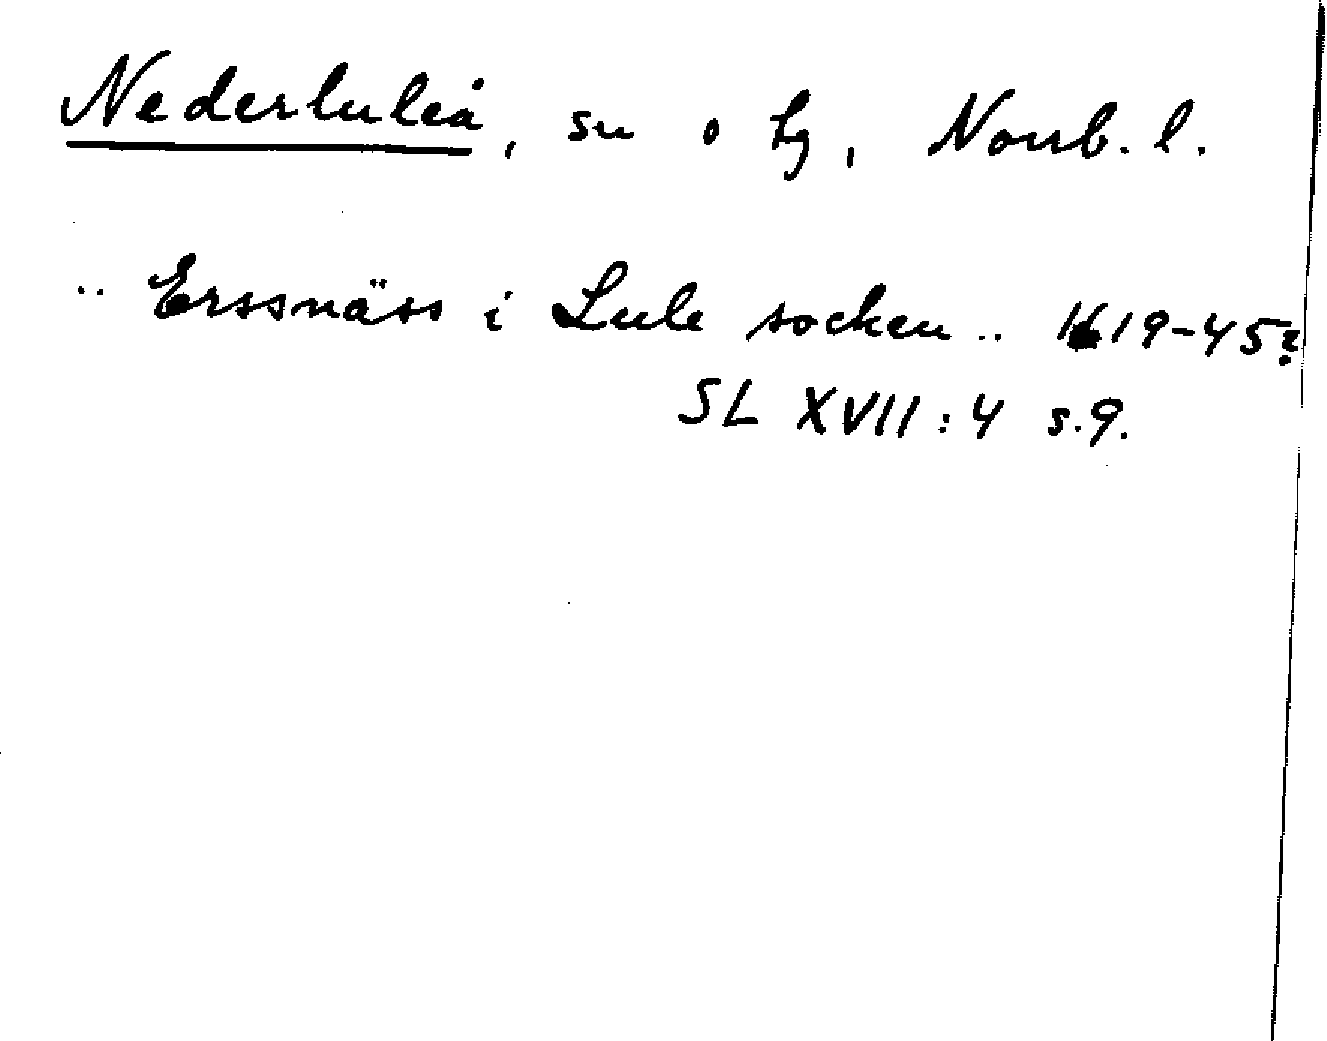 Nederluleå, sn o tg, Norrb. l.
.. Erssnäss i Lule socken .. 1619-45?
SL XVII:4 s.9.